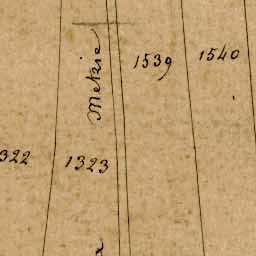 1539
1540
Metzie
322
1323